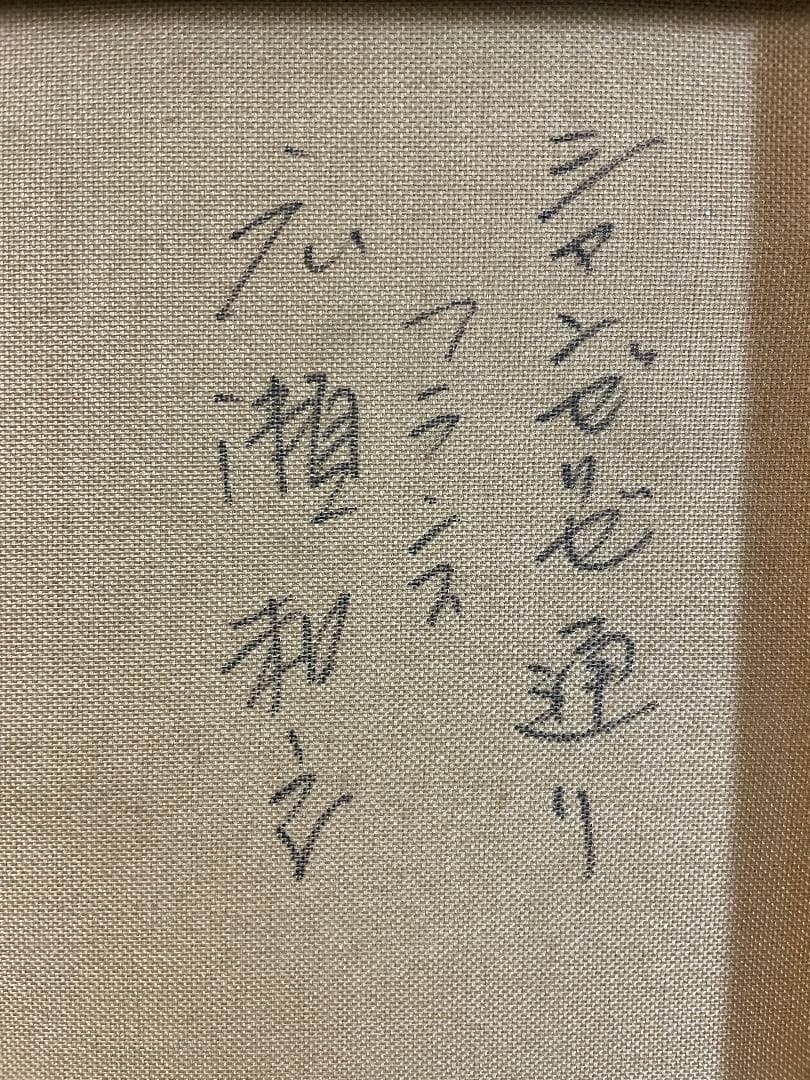 シャンゼリゼ通り
フランス
広瀬和之